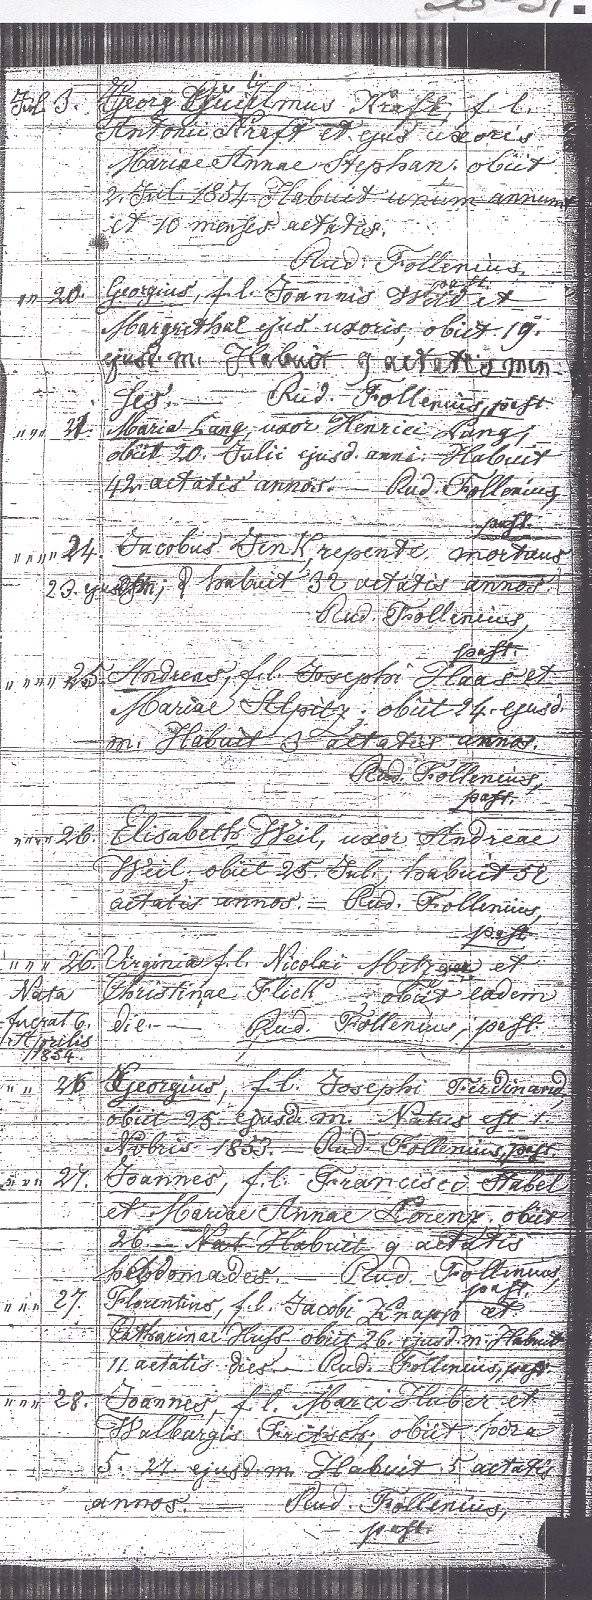 Jul. 3. Georg Guilelmus Kraft f. l.
Antonii Kraft et ejus uxoris
Mariae Annae Stephan. obiit
2. Jul. 1854. Habuit unum annum
et 10 menses aetatis.
Rud. Follenius,
past.
"" 20. Georgius, f. l. Joannis Weid et
Margrethae ejus uxoris, obiit 19.
ejusd. m. Habuit 9 aetatis men-
ses. — Rud. Follenius, past.
""" 21. Maria Lang, uxor Henrici Lang,
obiit 20. Julii ejusd. anni. Habuit
42 aetatis annos. — Rud. Follenius,
past.
"""" 24. Jacobus Fink, repente mortuus
23. ejusdm; habuit 32 aetatis annos.
Rud. Follenius,
past.
"""" 25. Andreas, f. l. Josephi Haas et
Mariae Alpitz, obiit 24. ejusd.
m. Habuit 3 aetatis annos.
Rud. Follenius,
past.
"""" 26. Elisabeth Weil, uxor Andreae
Weil, obiit 25. Jul., habuit 52
aetatis annos. — Rud. Follenius,
past.
""" 26. Virginia f. l. Nicolai Metzger et
Nata Christinae Flick obiit eadem
fuerat 6. die. — Rud. Follenius, past.
Aprilis
1854.
"" 26 Georgius, f. l. Josephi Ferdinand,
obiit 25 ejusd. m. Natus est 1.
Nobris 1853. — Rud. Follenius, past.
""" 27. Joannes, f. l. Francisci Stabel
et Mariae Annae Lorenz, obiit
26. — Nat Habuit 9 aetatis
hebdomades. — Rud. Follenius,
past.
""" 27. Florentius, f. l. Jacobi Knapp et
Catharinae Huss obiit 26. ejusd. m. Habuit
11 aetatis dies. — Rud. Follenius, past.
""" 28. Joannes, f. l. Marci Huber et
Walburgis Fritsch, obiit hora
5. 27. ejusd. m. Habuit 5 aetatis
annos. — Rud. Follenius,
past.